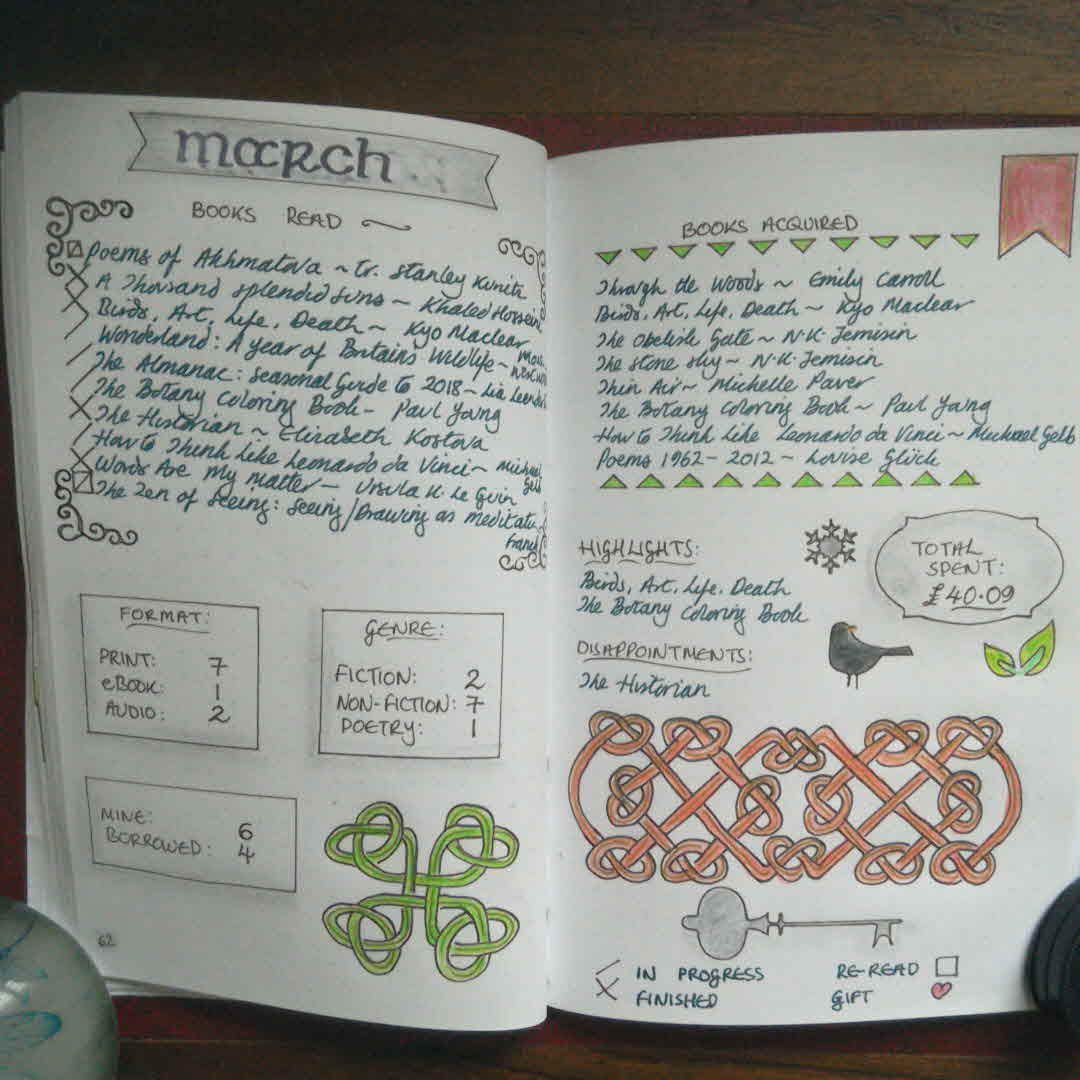 March
BOOKS READ
Poems of Akhmatova ~ tr. Stanley Kunitz
A Thousand Splendid Suns ~ Khaled Hossein
Birds, Art, Life, Death ~ Kyo Maclear
Wonderland: A year of Britain's Wildlife ~
The Almanac: Seasonal Guide to 2018 ~ Lia Leend
The Botany Coloring Book - Paul Young
The Historian ~ Elizabeth Kostova
How to Think Like Leonardo da Vinci ~ Michael
Gelb
Words Are my matter - Ursula K. Le Guin
The Zen of Seeing: Seeing/Drawing as meditati
FORMAT:
PRINT: 7
eBOOK: 1
AUDIO: 2
GENRE:
FICTION: 2
NON-FICTION: 7
POETRY: 1
MINE: 6
BORROWED: 4
62
BOOKS ACQUIRED
Through the Woods ~ Emily Carroll
Birds, Art, Life, Death ~ Kyo Maclear
The Obelisk Gate ~ N.K. Jemisin
The Stone Sky ~ N.K. Jemisin
Thin Air ~ Michelle Paver
The Botany Coloring Book ~ Paul Young
How to Think Like Leonardo da Vinci ~ Michael Gelb
Poems 1962-2012 ~ Louise Glück
HIGHLIGHTS:
Birds, Art, Life, Death
The Botany Coloring Book
TOTAL
SPENT:
£40.09
DISAPPOINTMENTS:
The Historian
IN PROGRESS
FINISHED
RE-READ
GIFT